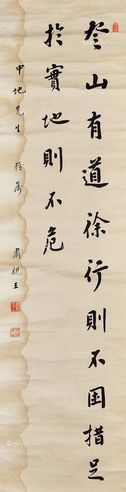 登山有道徐行則不困措足
於實地則不危
中地先生 雅屬
肅親王